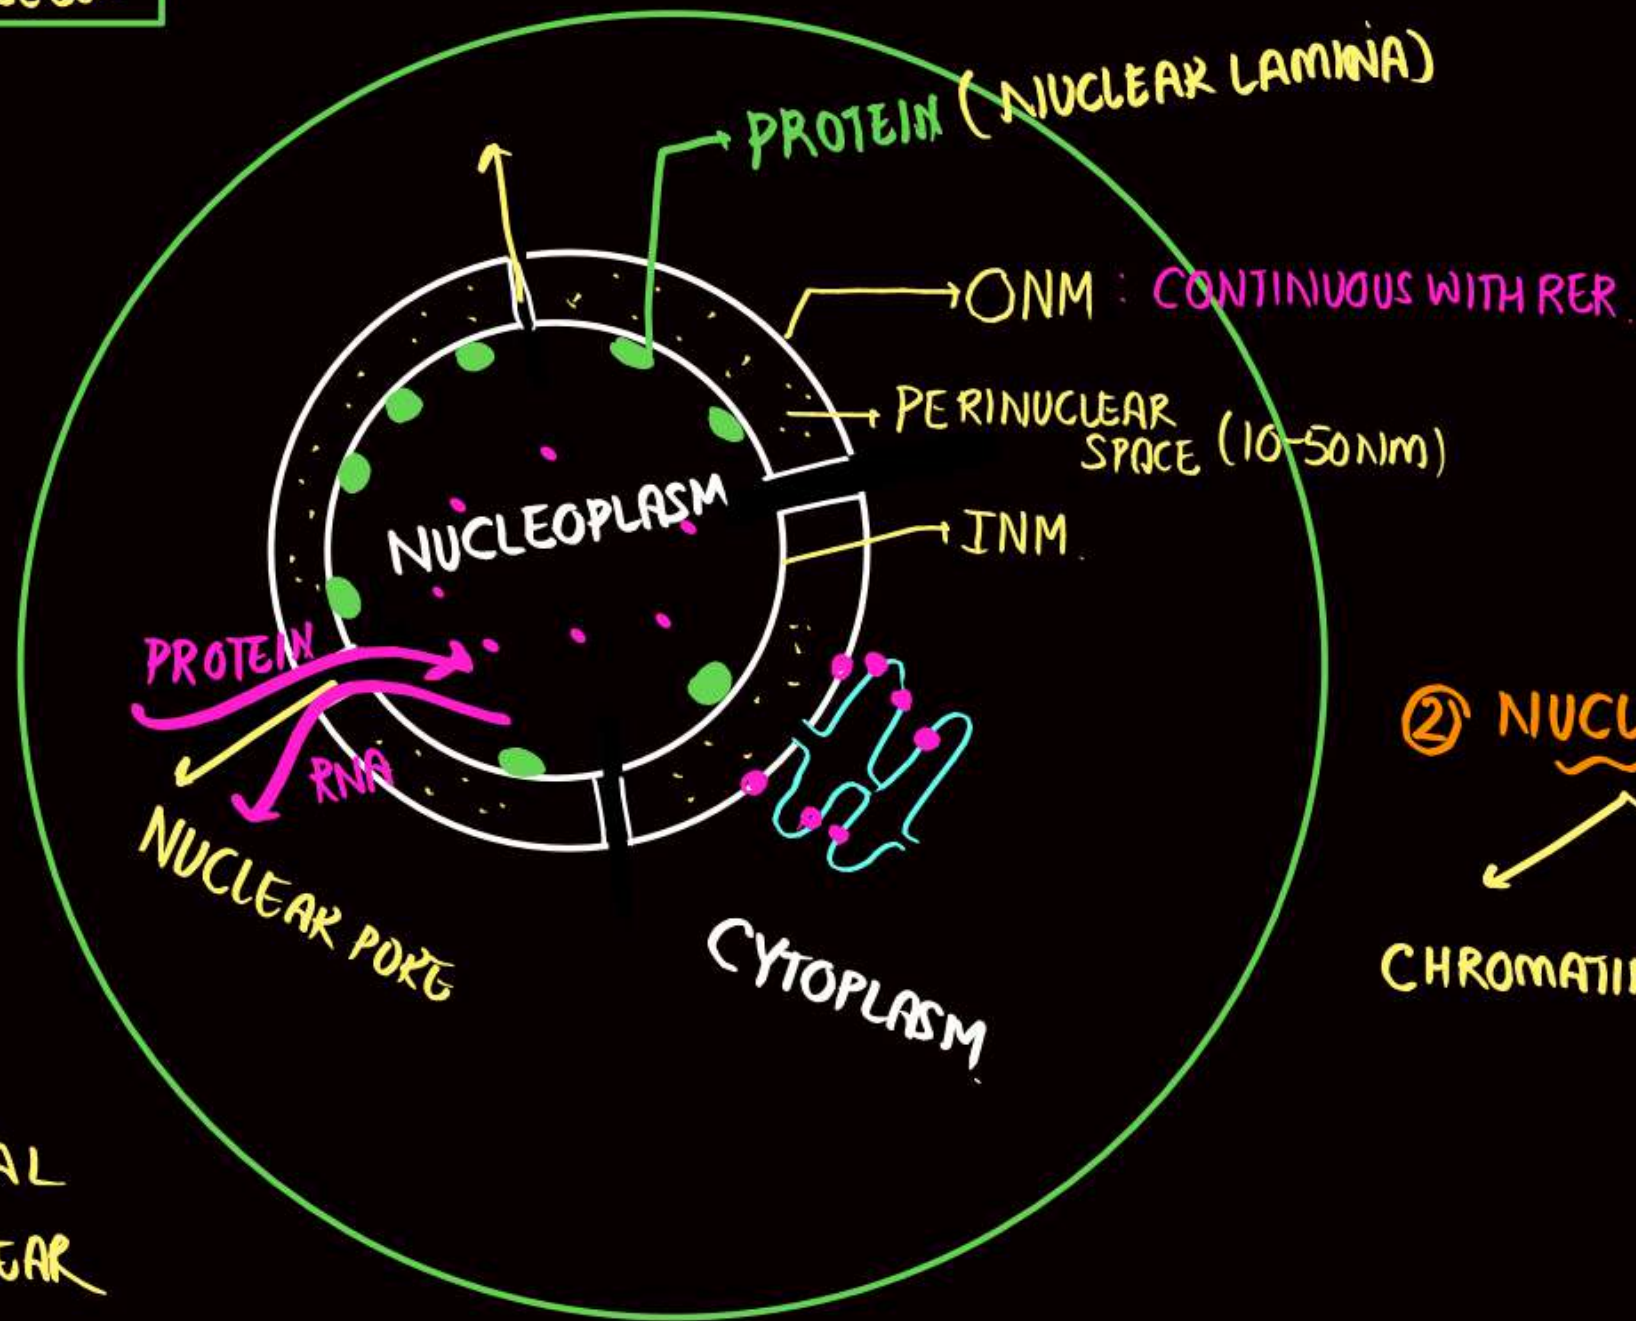 PROTEIN (NUCLEAR LAMINA)
ONM : CONTINUOUS WITH RER
PERINUCLEAR
SPACE (10-50NM)
NUCLEOPLASM
INM
PROTEIN
RNA
NUCLEAR PORE
CYTOPLASM
② NUCL
CHROMATI
AL
EAR